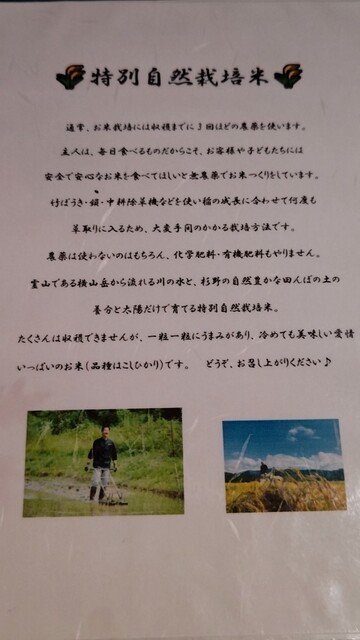 特別自然栽培米
通常、お米栽培には収穫までに3回ほどの農薬を使います。
主人は、毎日食べるものだからこそ、お客様や子どもたちには
安全で安心なお米を食べてほしいと無農薬でお米つくりをしています。
竹ぼうき・鎖・中耕除草機などを使い稲の成長に合わせて何度も
草取りに入るため、大変手間のかかる栽培方法です。
農薬は使わないのはもちろん、化学肥料・有機肥料もやりません。
霊山である横山岳から流れる川の水と、杉野の自然豊かな田んぼの土の
養分と太陽だけで育てる特別自然栽培米。
たくさんは収穫できませんが、一粒一粒にうまみがあり、冷めても美味しい愛情
いっぱいのお米（品種はこしひかり）です。 どうぞ、お召し上がりください♪